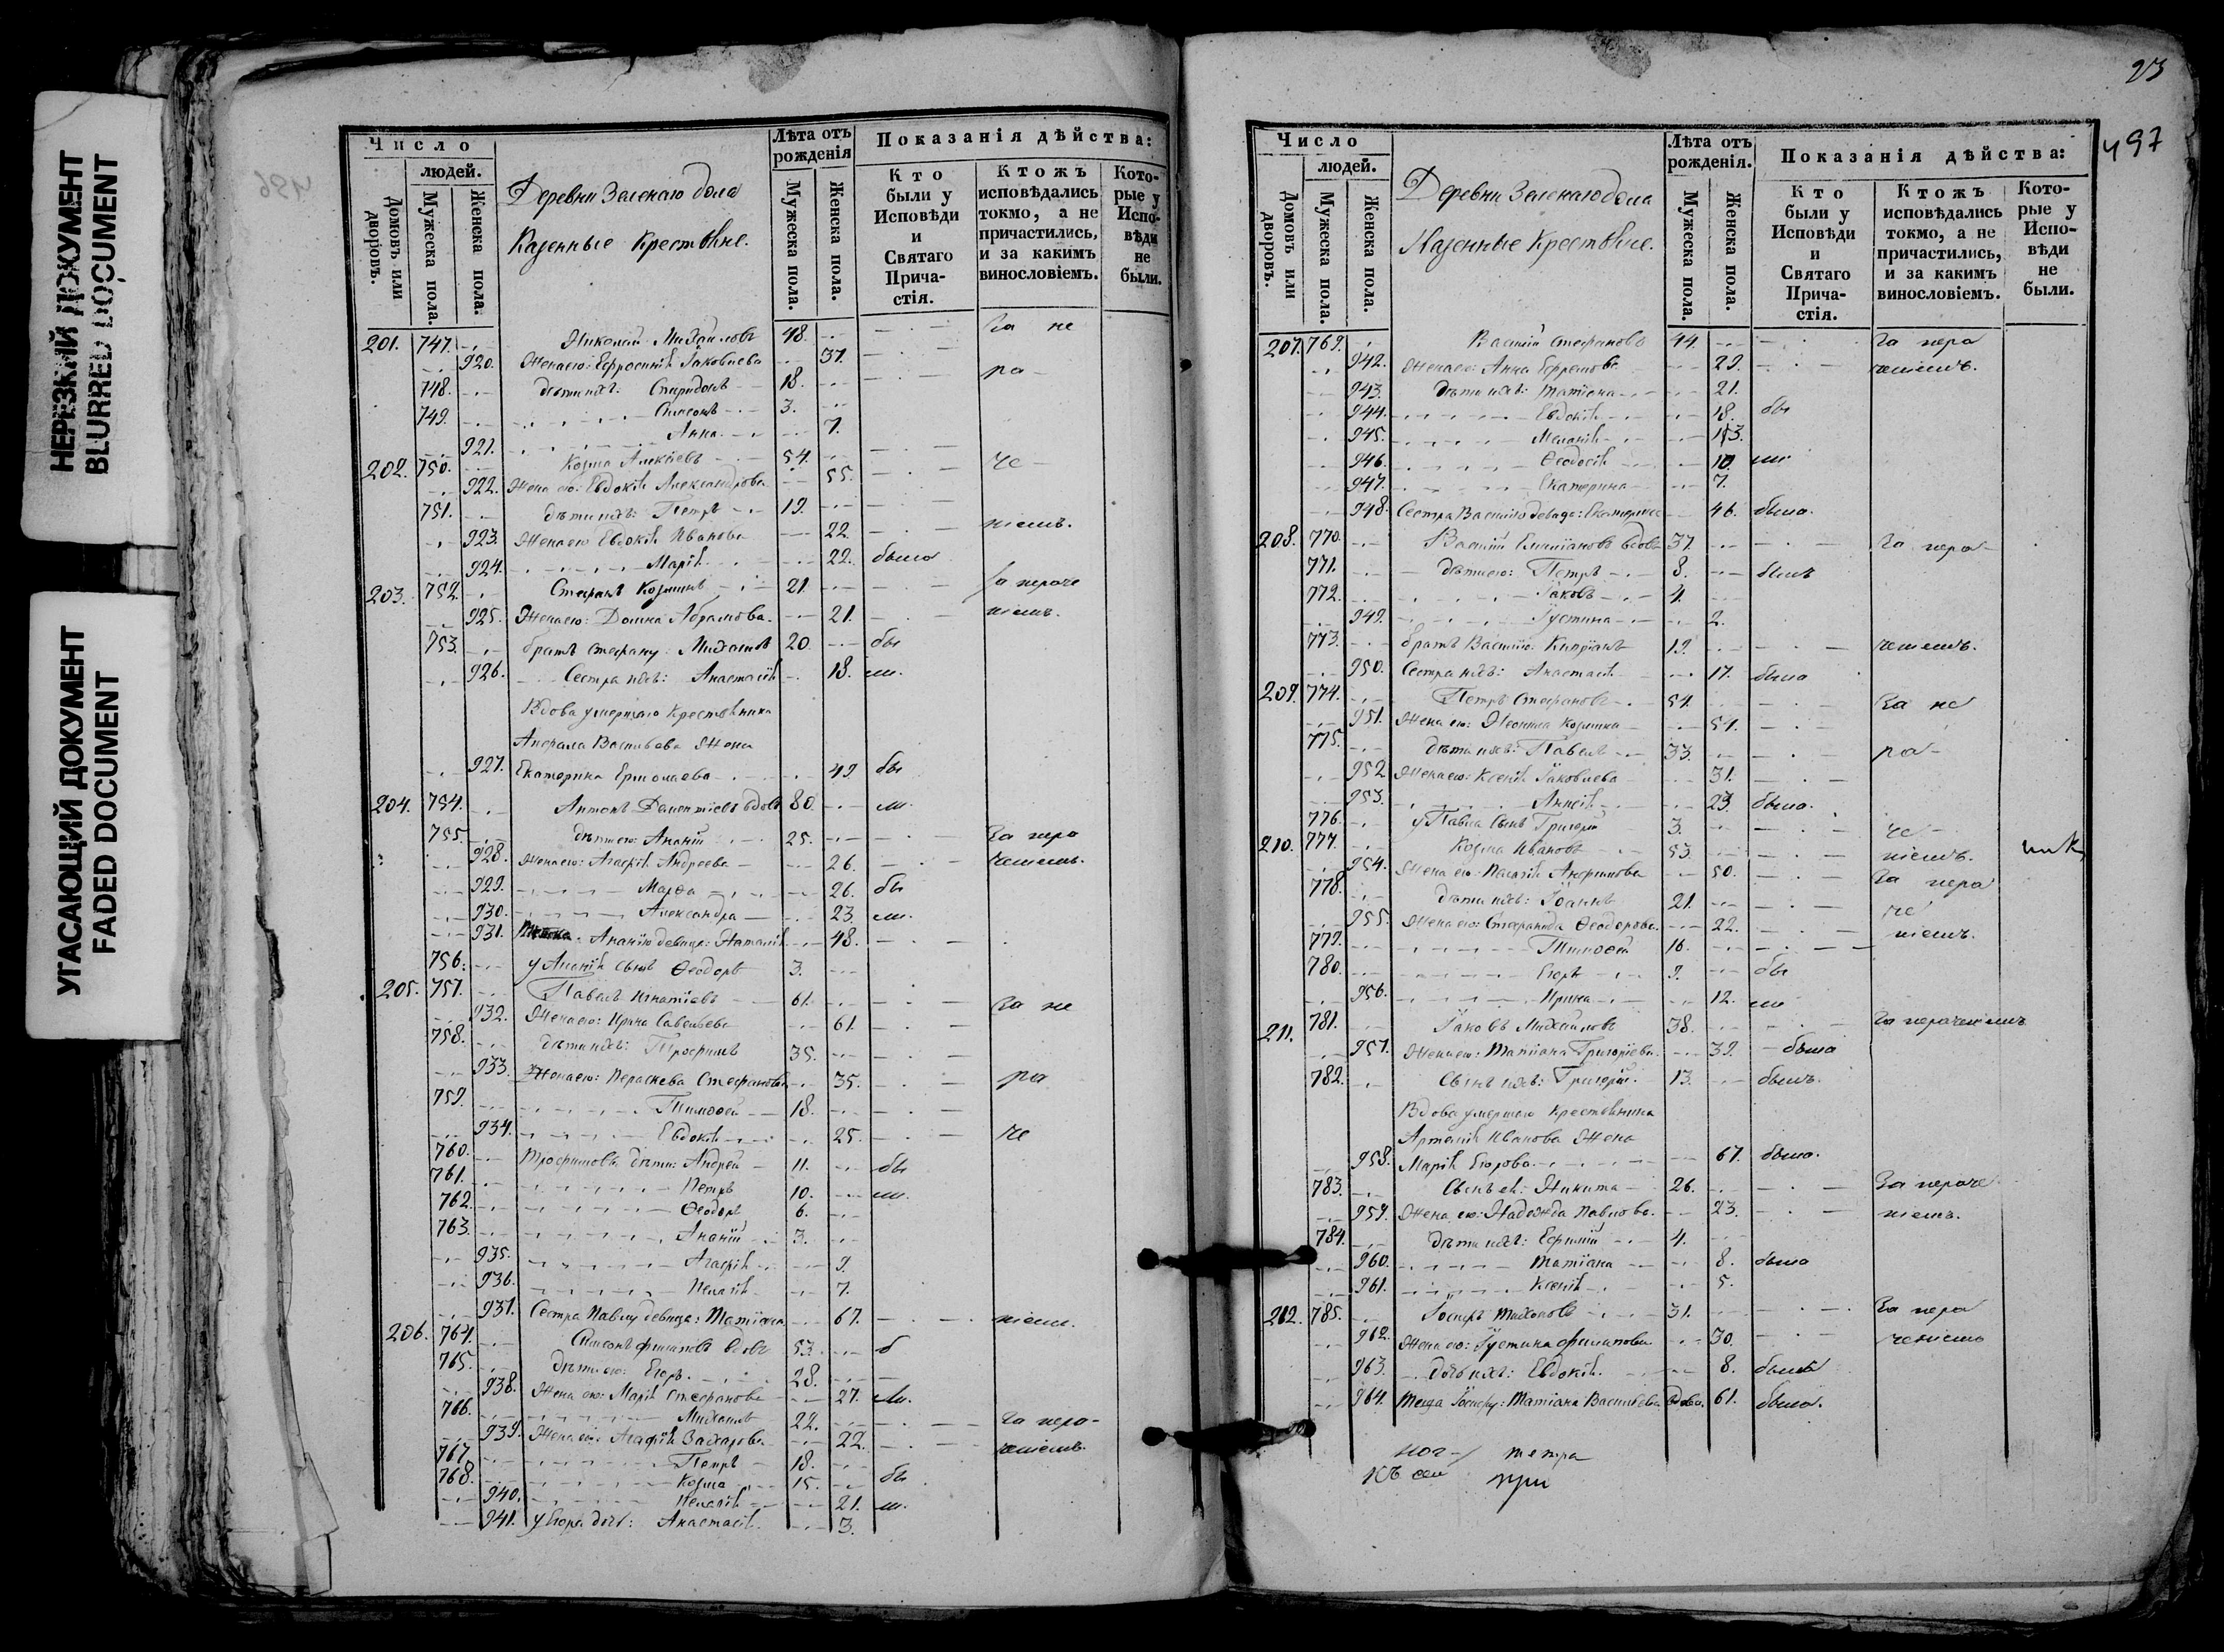 НЕРЕЗКИЙ ДОКУМЕНТ
BLURRED DOCUMENT
УГАСАЮЩИЙ ДОКУМЕНТ
FADED DOCUMENT
Число
людей.
Домовъ или дворовъ.
Мужеска пола.
Женска пола.
Деревни Зеленаго дола
Казенные Крестьяне.
Лѣта отъ рожденія
Мужеска пола.
Женска пола.
Показанія дѣйства:
Кто были у Исповѣди и Святаго Причастія.
Ктожъ исповѣдались токмо, а не причастились, и за какимъ винословіемъ.
Которые у Исповѣди не были.
201. 747. Николай Михайловъ 48. За не
920. Жена ею: Ефросинія Іаковлева 37.
748. дѣти ихъ: Спиридонъ 18. ра
749. Симеонъ 3.
921. Анна 7.
202. 750. Козма Алексіевъ 54. че
922. Жена ею: Евдокія Александрова 55.
751. дѣти ихъ: Петръ 19.
923. Жена ею Евдокія Иванова 22. ніемъ.
924. Марія 22. была
203. 752. Стефанъ Козминъ 21. За нераче
925. Жена ею: Домна Абрамова 21. ніемъ.
753. братъ Стефану: Михаилъ 20. бы
926. Сестра ихъ: Анастасія 18. ли.
Вдова умершаго Крестьянина
Васильева Жена
927. Екатерина Ермолаева 49 бы
204. 754. Антонъ Дементіевъ вдовъ 80. ли.
755. дѣти ею: Ананій 25. За нера
928. Жена ею: Агафія Андреева 26. ченіемъ.
929. Марѳа 26. бы
930. Александра 23. ли.
931. Ананію девица: Наталія 48.
756. у Ананія сынъ Ѳеодоръ 3.
205. 757. Павелъ Игнатіевъ 61. За не
932. Жена ею: Ирина Савельева 61.
758. дѣти ихъ: Трофимъ 35.
933. Жена ею: Параскева Стефанова 35. ра
759. Тимоѳей 18.
934. Евдокія 25. че
760. Трофимовы дѣти: Андрей 11. бы
761. Петръ 10. ли.
762. Ѳеодоръ 6.
763. Ананій 3.
935. Агафія 9.
936. Пелагія 7.
937. Сестра Павлу девица: Матрона 67. ніемъ.
206. 764. Симеонъ Филиповъ вдовъ 53. б
765. дѣти ею: Егоръ 28.
938. Жена ею: Марія Стефанова 27. ли.
766. Михаилъ 22. За нера-
939. Жена ею: Агафія Захарова 22. ченіемъ.
767. Петръ 18.
768. Козма 15. бы
940. Пелагія 21. ли.
941. у Егора дочь: Анастасія 3.
23
497
Число
людей.
Домовъ или дворовъ.
Мужеска пола.
Женска пола.
Деревни Зеленаго дола
Казенные Крестьяне.
Лѣта отъ рожденія.
Мужеска пола.
Женска пола.
Показанія дѣйства:
Кто были у Исповѣди и Святаго Причастія.
Ктожъ исповѣдались токмо, а не причастились, и за какимъ винословіемъ.
Которые у Исповѣди не были.
207. 769. Василій Стефановъ 44. За нера
942. Жена ею: Анна Ефремова 29. ченіемъ.
943. дѣти ихъ: Татіана 21.
944. Евдокія 18. бы
945. Меланія 13.
946. Ѳеодосія 10. ли
947. Екатерина 7.
948. Сестра Василію девица: Екатерина 46. была.
208. 770. Василій Емиліановъ вдовъ 37. За нера
771. дѣти ею: Петръ 8. былъ
772. Іаковъ 4.
949. Іустина 2.
773. братъ Василію: Кипріанъ 19. ченіемъ.
950. Сестра ихъ: Анастасія 17. была
209. 774. Петръ Стефановъ 54. За не
951. Жена ею: Козмина 54.
775. дѣти ихъ: Павелъ 33. ра
952. Жена ею: Ксенія Іаковлева 31.
953. Анисія 23. была.
776. у Павла сынъ Григорій 3. че
210. 777. Козма Ивановъ 53. ніемъ.
954. Жена ею: Пелагія 50. За нера
778. дѣти ихъ: Іоаннъ 21. че
955. Жена ею: Стефанида Ѳеодорова 22. ніемъ.
779. Тимоѳей 16.
780. Егоръ 9. бы
956. Ирина 12. ли
211. 781. Іаковъ Михайловъ 38. За нераченіемъ
957. Жена ею: Татіана Григоріева 39. была
782. Сынъ ихъ: Григорій 13. былъ.
Вдова умершаго Крестьянина
Артемія Иванова Жена
958. Марія Егорова 67. была.
783. Сынъ ея: Никита 26. За нераче
959. Жена ею: Надежда Павлова 23. ніемъ.
784. дѣти ихъ: Ефимій 4.
960. Татіана 8. была
961. Ксенія 5.
212. 785. Іосифъ Тихоновъ 31. За нера
962. Жена ею: Іустина Филипова 30. ченіемъ
963. дочь ихъ: Евдокія 8. была
964. Теща Іосифу: Татіана Васильева вдова 61. была.